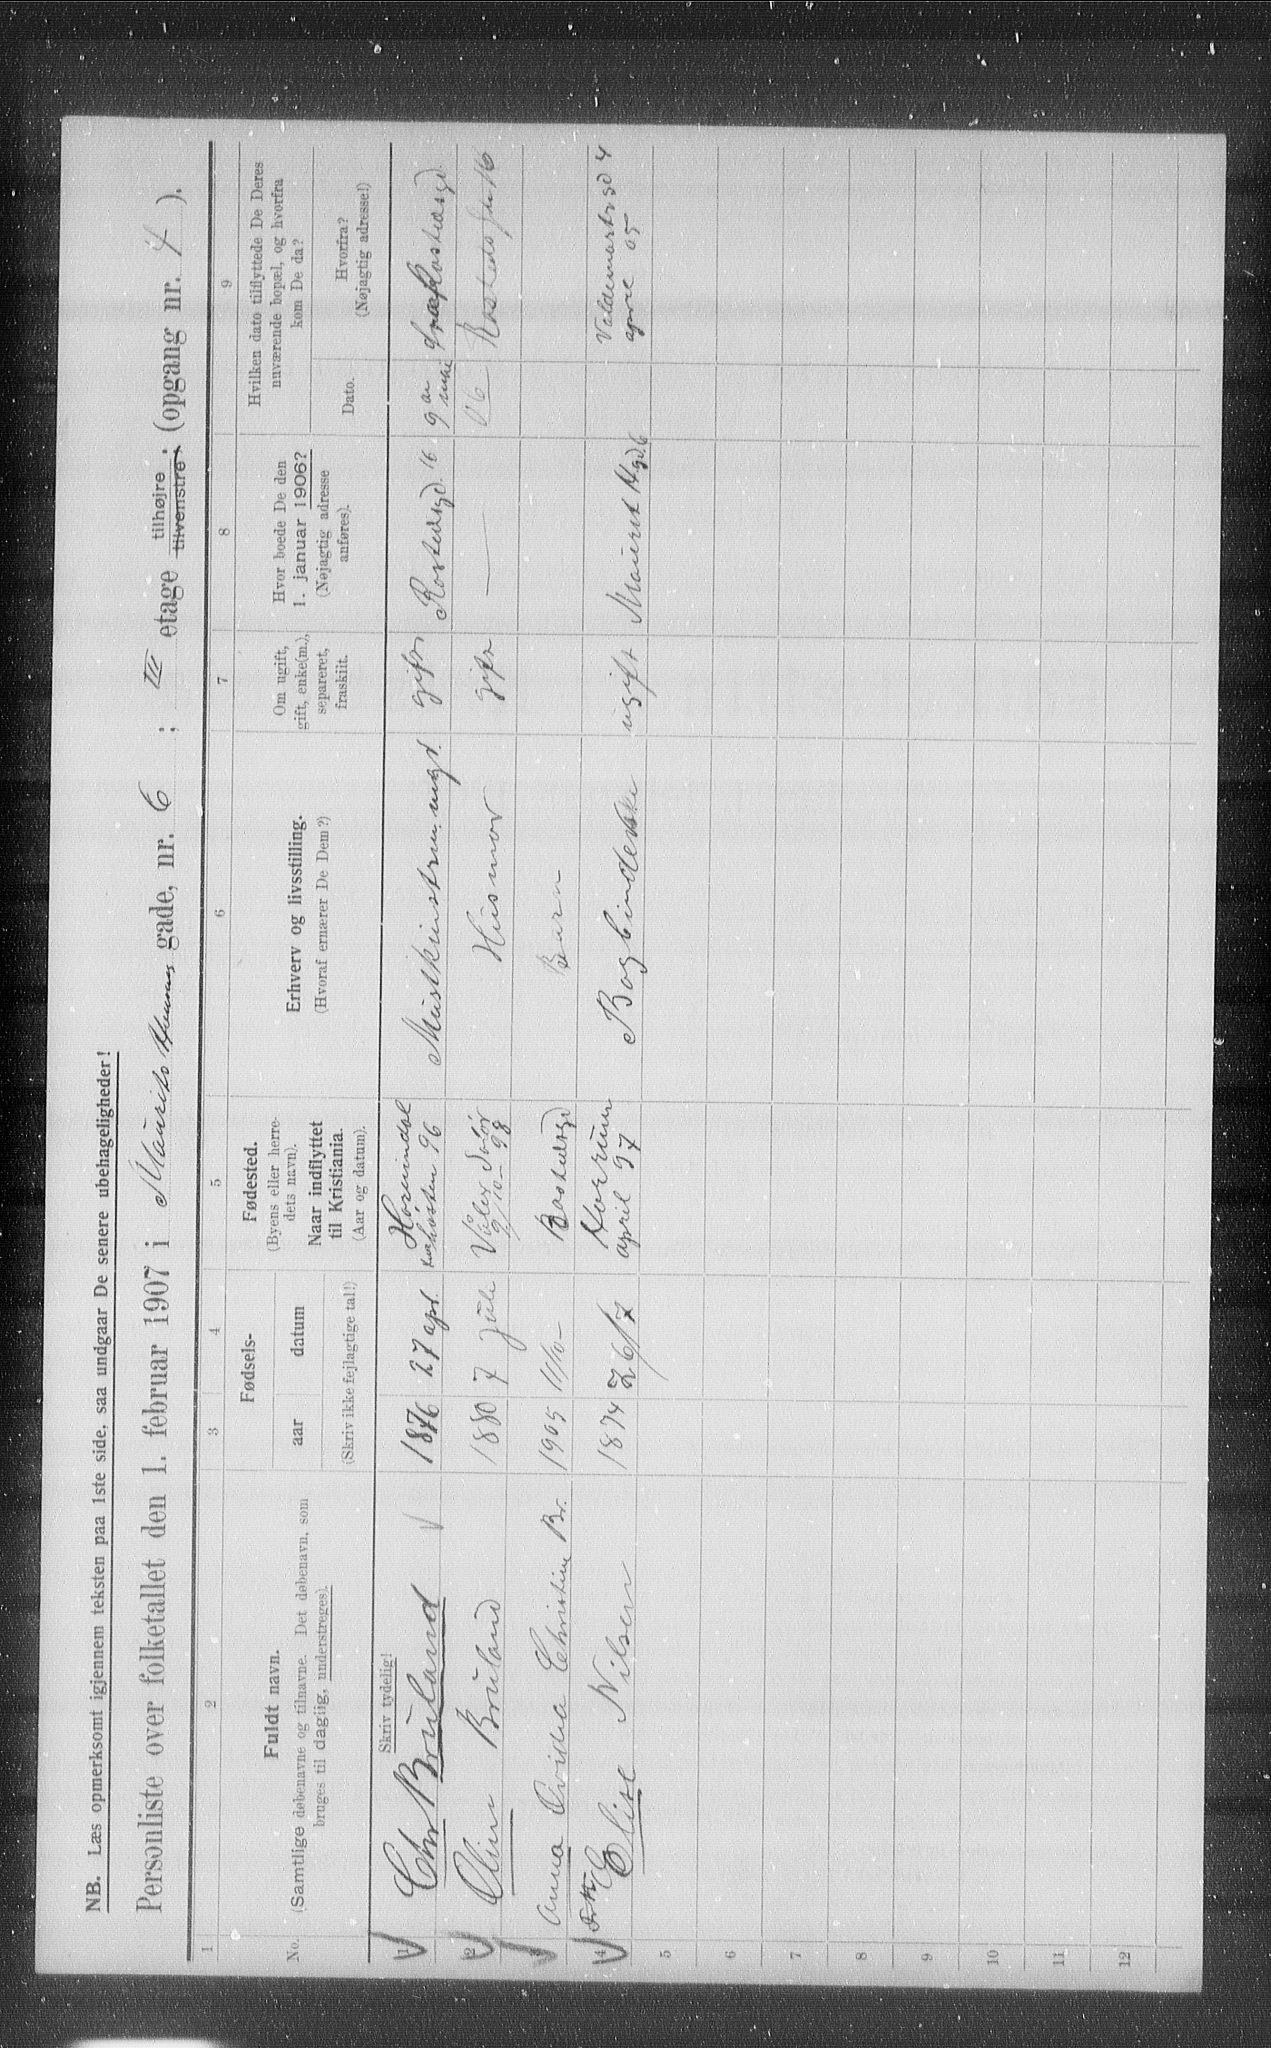 NB. Læs opmerksomt igjennem teksten paa 1ste side, saa undgaar De senere ubehageligheder!
Personliste over folketallet den 1. februar 1907 i Mauritz Hansens gade, nr. 6 ; III etage tilhøjre, tilvenstre, (opgang nr. 4 ).
1 2 3 4 5 6 7 8 9
No.
Fuldt navn.
(Samtlige døbenavne og tilnavne. Det døbenavn, som
bruges til daglig, understreges).
Fødsels-
aar datum
(Skriv ikke fejlagtige tal!)
Fødested.
(Byens eller herre-
dets navn).
Naar indflyttet
til Kristiania.
(Aar og datum).
Erhverv og livsstilling.
(Hvoraf ernærer De Dem?)
Om ugift,
gift, enke(m.),
separeret,
fraskilt.
Hvor boede De den
1. januar 1906?
(Nøjagtig adresse
anføres).
Hvilken dato tilflyttede De Deres
nuværende bopæl, og hvorfra
kom De da?
Dato.
Hvorfra?
(Nøjagtig adresse!)
Skriv tydelig!
1 Chr Bruland 1876 27 apr. Hornindal høsten 96 gift Rostedsgd. 16 9 mai Rostedsgd.
2 Oline Bruland 1880 7 Juli Våler Solør 9/10 98 Husmor gift — 06 Rosteds gd 16
3 Anna Ovidia Christine Br. 1905 11/10 Rostedsgd Barn
4 Frk Elise Nilsen 1874 26/7 april 97 Bogbinderske ugift Maurits H. gd. 6 Valdemarts gd 4
april 05
5
6
7
8
9
10
11
12